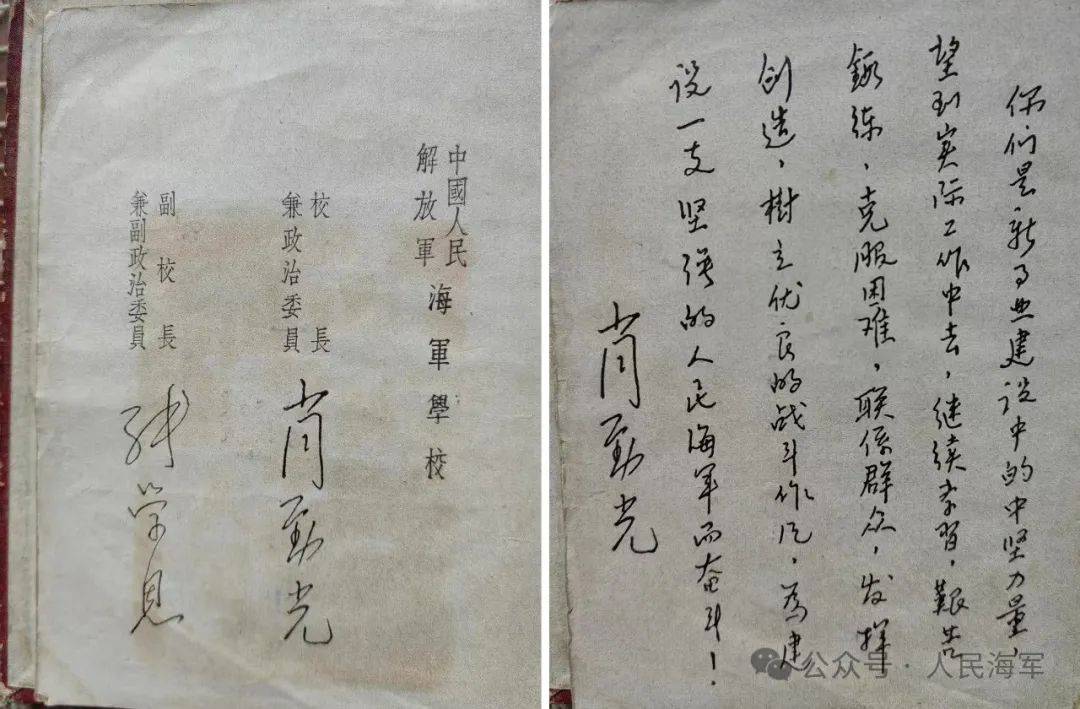 中國人民
解放軍
海軍學校
校長
兼政治委員
肖勁光
副校長
兼副政治委員
张学思
你们是新事业建设中的中坚力量，
望到实际工作中去，继续学習，艱苦
鍛练，克服困难，联係群众，发挥
创造，樹立优良的战斗作风，為建
设一支坚强的人民海军而奋斗！
肖勁光
公众号·人民海军